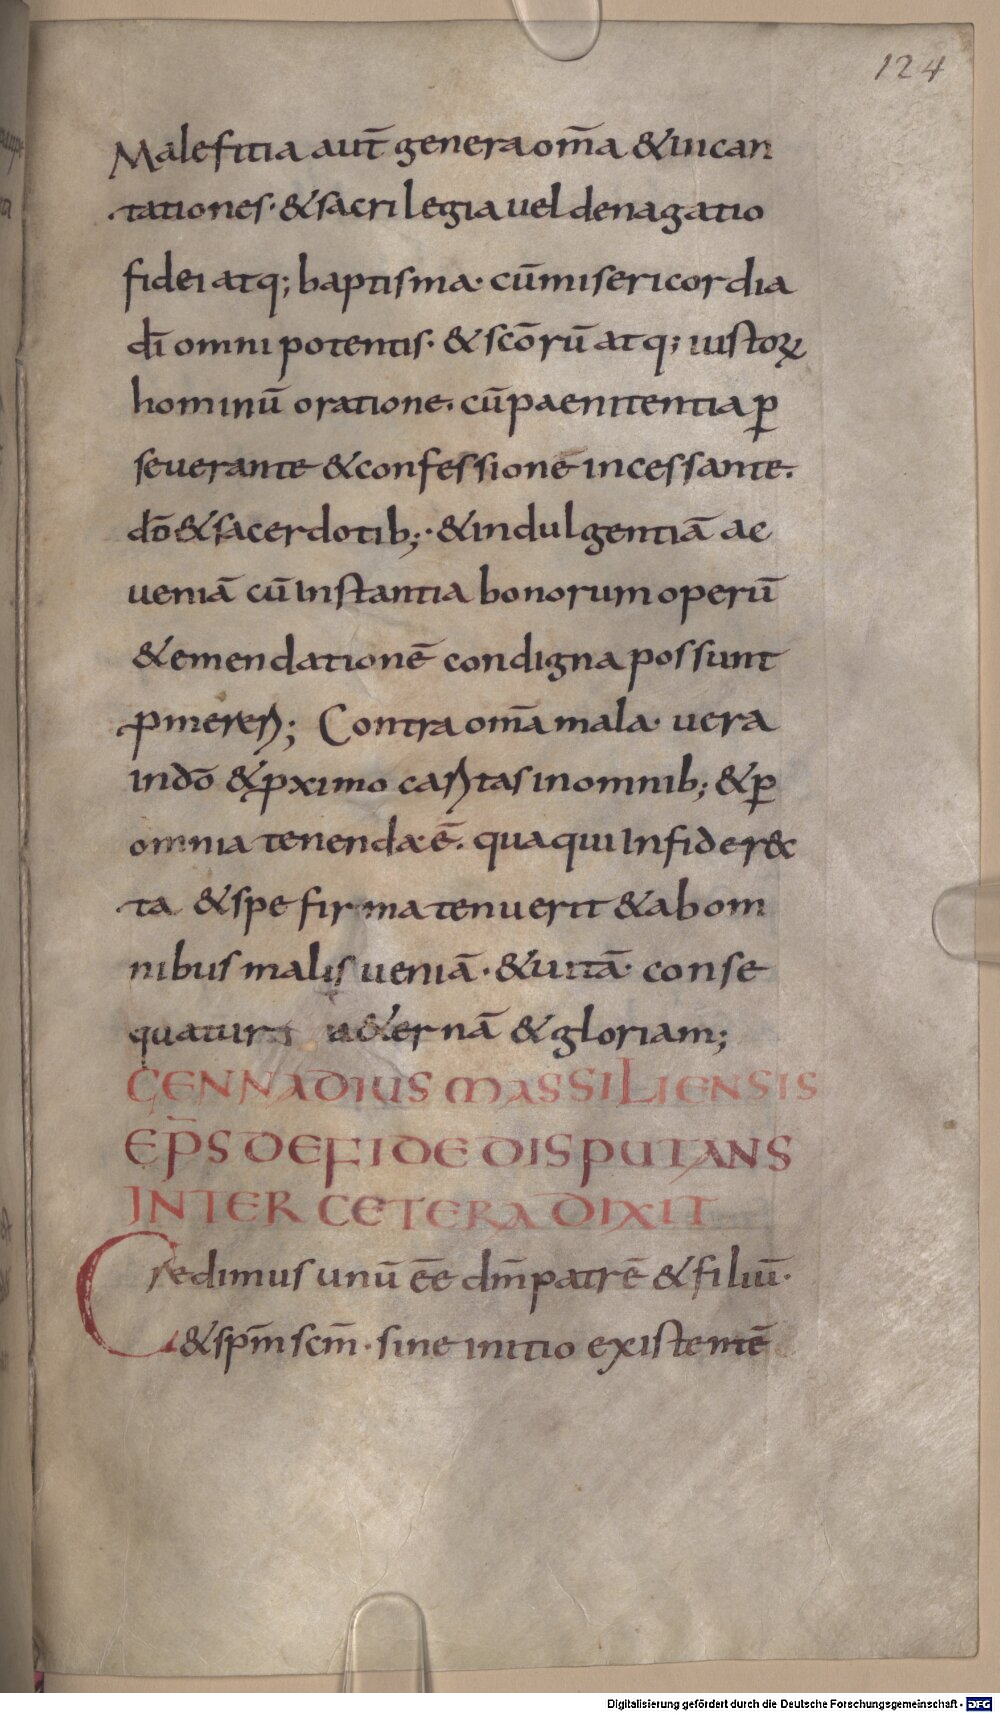 124
Malefitia aut̄ genera om̄a & incan
tationes· & sacrilegia uel denagatio
fidei atq; baptisma· cū misericordia
dī omnipotentis· & scōrū atq; iustoꝝ
hominū oratione· cū paenitentia ꝑ
seuerante & confessione incessante·
dō & sacerdotib;· & indulgentiā ac
ueniā cū instantia bonorum operū
& emendationē condigna possunt
ꝓmereri; Contra om̄a mala· uera
in dō & ꝓximo caritas in omnib; & ꝑ
omnia tenenda· ē· qua qui in fide r&
ta & spe firma tenuerit & ab om
nibus malis ueniā· & uitā· conse
quatur &ernā & gloriam;
GENNADIUS MASSILIENSIS
EP̄S DE FIDE DISPUTANS
INTER CETERA DIXIT
Credimus unū ēē dm̄ patrē & filiū·
& spm̄ scm̄· sine initio existentē
Digitalisierung gefördert durch die Deutsche Forschungsgemeinschaft - DFG